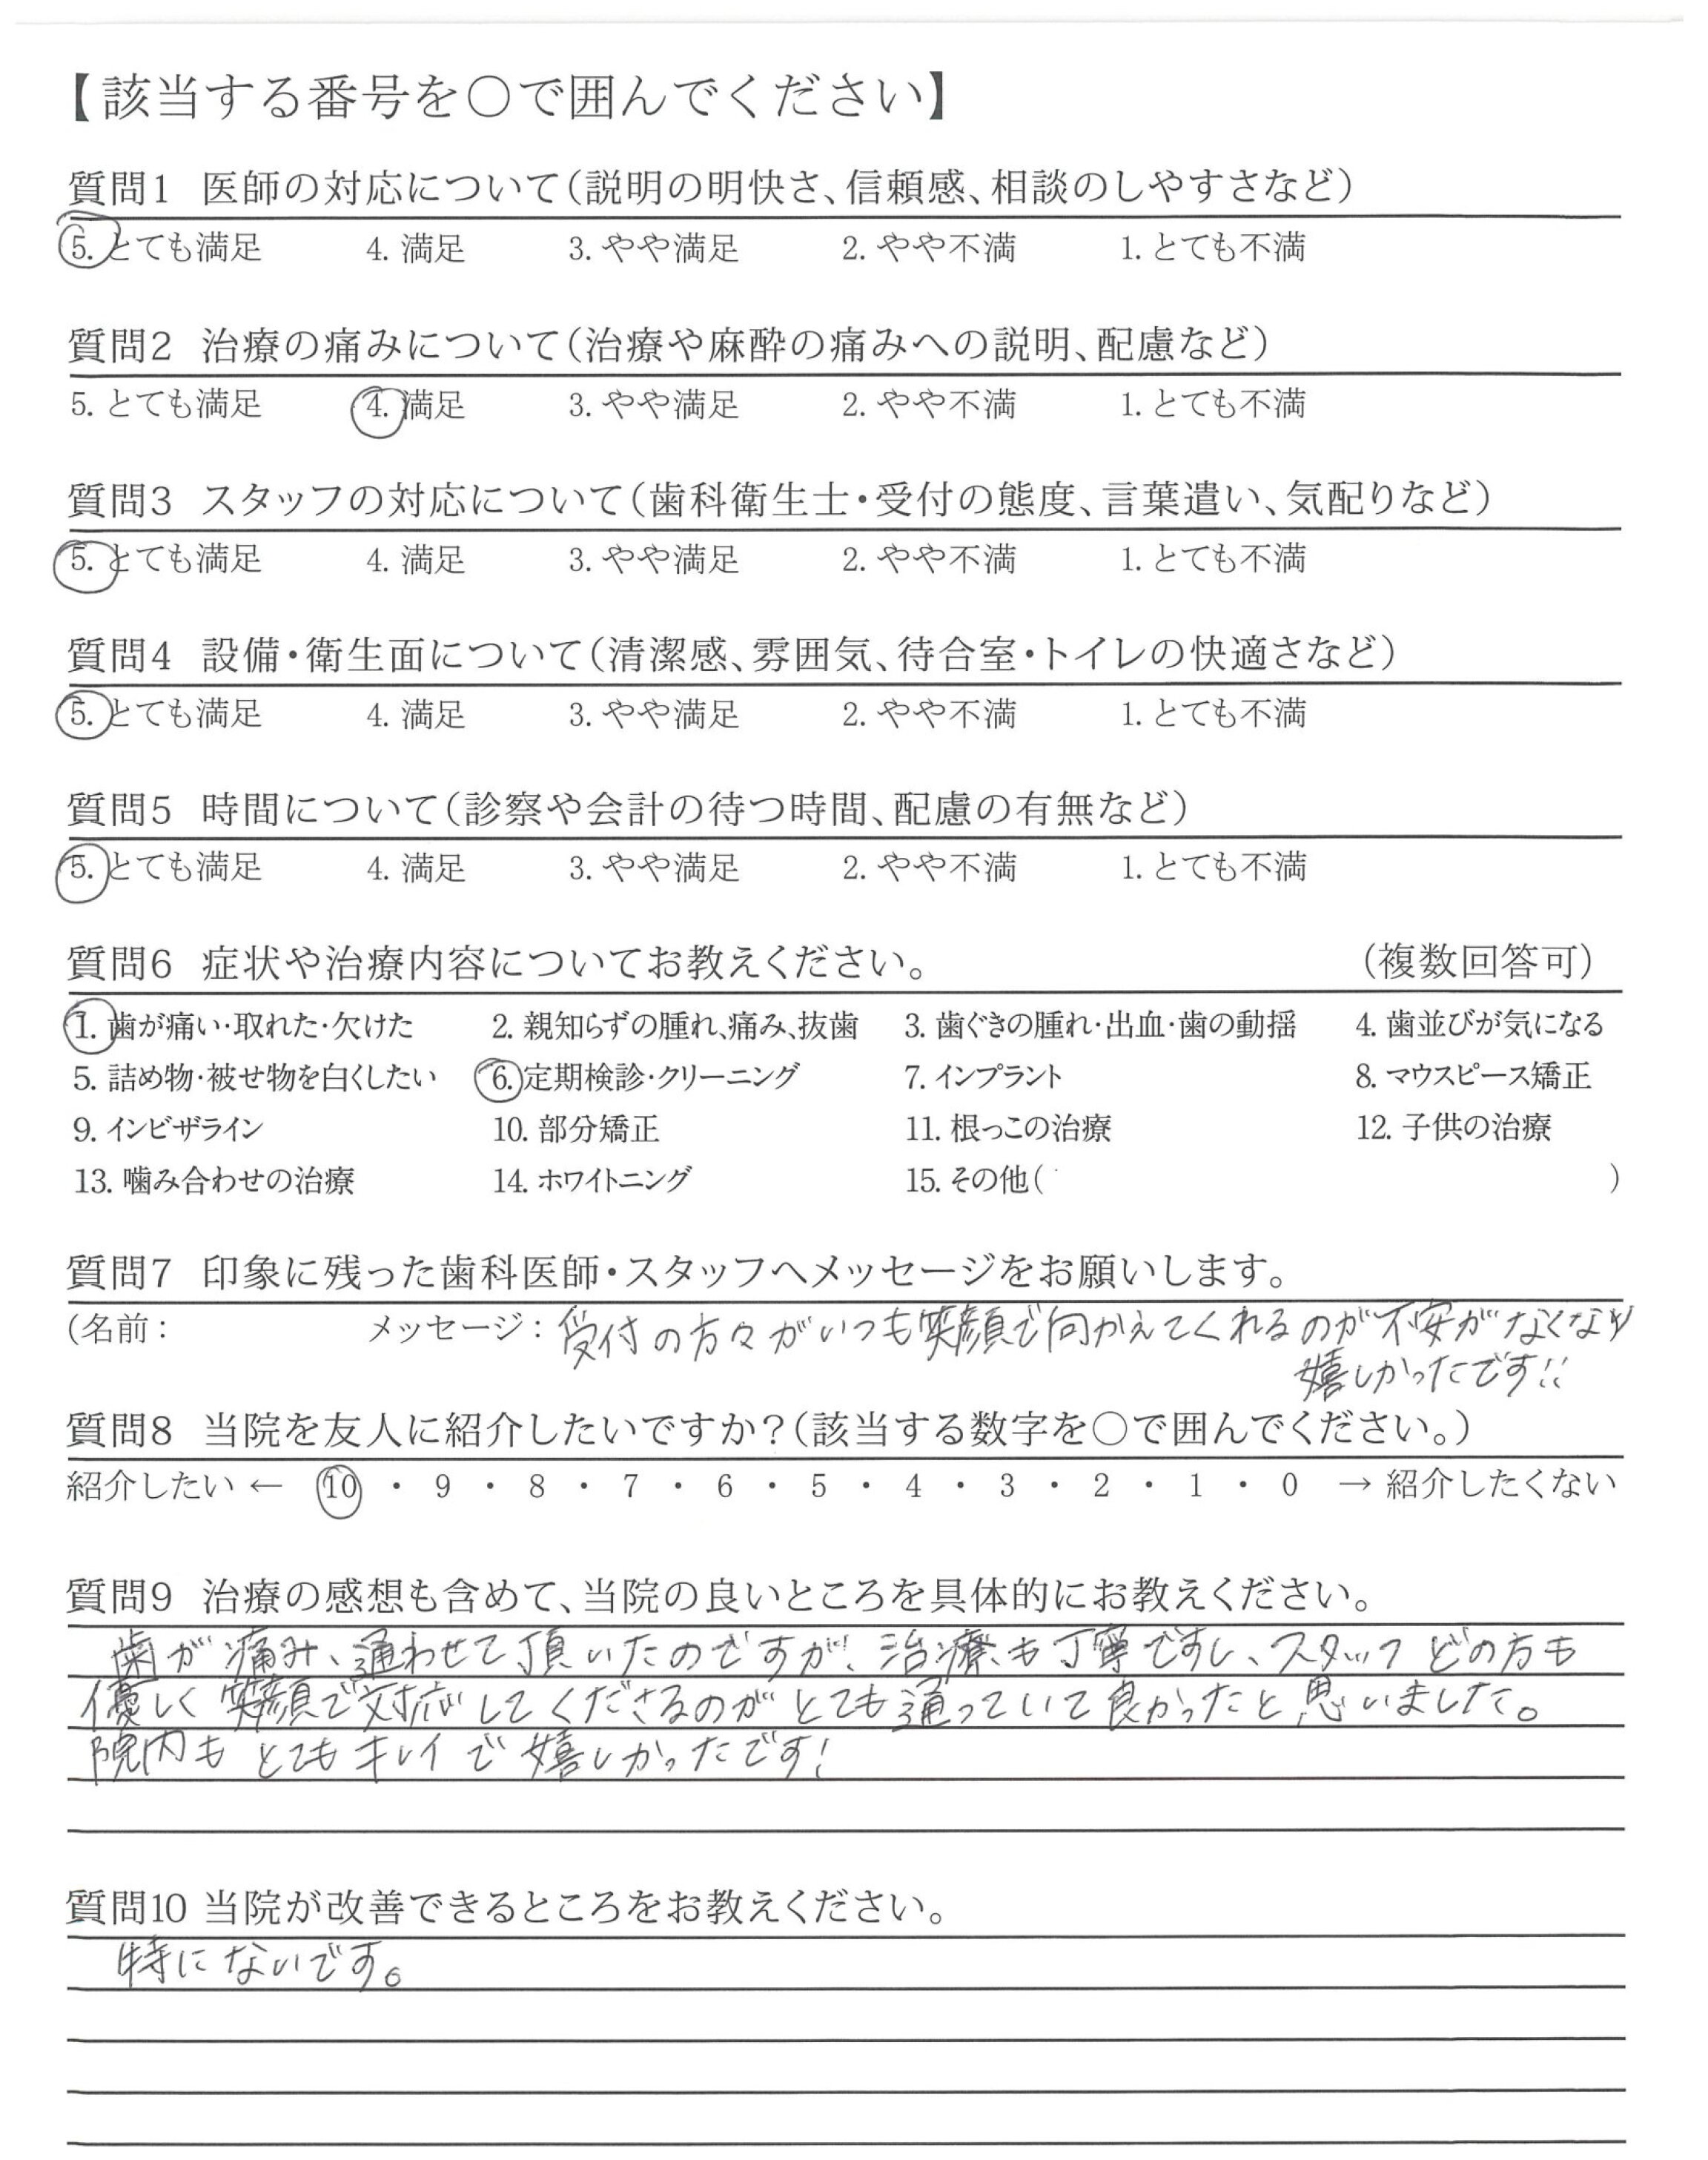 【該当する番号を○で囲んでください】
質問1 医師の対応について(説明の明快さ、信頼感、相談のしやすさなど)
5. とても満足 4. 満足 3. やや満足 2. やや不満 1. とても不満
質問2 治療の痛みについて(治療や麻酔の痛みへの説明、配慮など)
5. とても満足 4. 満足 3. やや満足 2. やや不満 1. とても不満
質問3 スタッフの対応について(歯科衛生士・受付の態度、言葉遣い、気配りなど)
5. とても満足 4. 満足 3. やや満足 2. やや不満 1. とても不満
質問4 設備・衛生面について(清潔感、雰囲気、待合室・トイレの快適さなど)
5. とても満足 4. 満足 3. やや満足 2. やや不満 1. とても不満
質問5 時間について(診察や会計の待つ時間、配慮の有無など)
5. とても満足 4. 満足 3. やや満足 2. やや不満 1. とても不満
質問6 症状や治療内容についてお教えください。 (複数回答可)
1. 歯が痛い・取れた・欠けた 2. 親知らずの腫れ、痛み、抜歯 3. 歯ぐきの腫れ・出血・歯の動揺 4. 歯並びが気になる
5. 詰め物・被せ物を白くしたい 6. 定期検診・クリーニング 7. インプラント 8. マウスピース矯正
9. インビザライン 10. 部分矯正 11. 根っこの治療 12. 子供の治療
13. 噛み合わせの治療 14. ホワイトニング 15. その他( )
質問7 印象に残った歯科医師・スタッフへメッセージをお願いします。
(名前： メッセージ：受付の方々がいつも笑顔で向かえてくれるのが不安がなくなり
嬉しかったです!!
質問8 当院を友人に紹介したいですか?(該当する数字を○で囲んでください。)
紹介したい ← 10 ・ 9 ・ 8 ・ 7 ・ 6 ・ 5 ・ 4 ・ 3 ・ 2 ・ 1 ・ 0 → 紹介したくない
質問9 治療の感想も含めて、当院の良いところを具体的にお教えください。
歯が痛み、通わせて頂いたのですが、治療も丁寧ですし、スタッフどの方も
優しく笑顔で対応してくださるのがとても通っていて良かったと思いました。
院内もとてもキレイで嬉しかったです!
質問10 当院が改善できるところをお教えください。
特にないです。